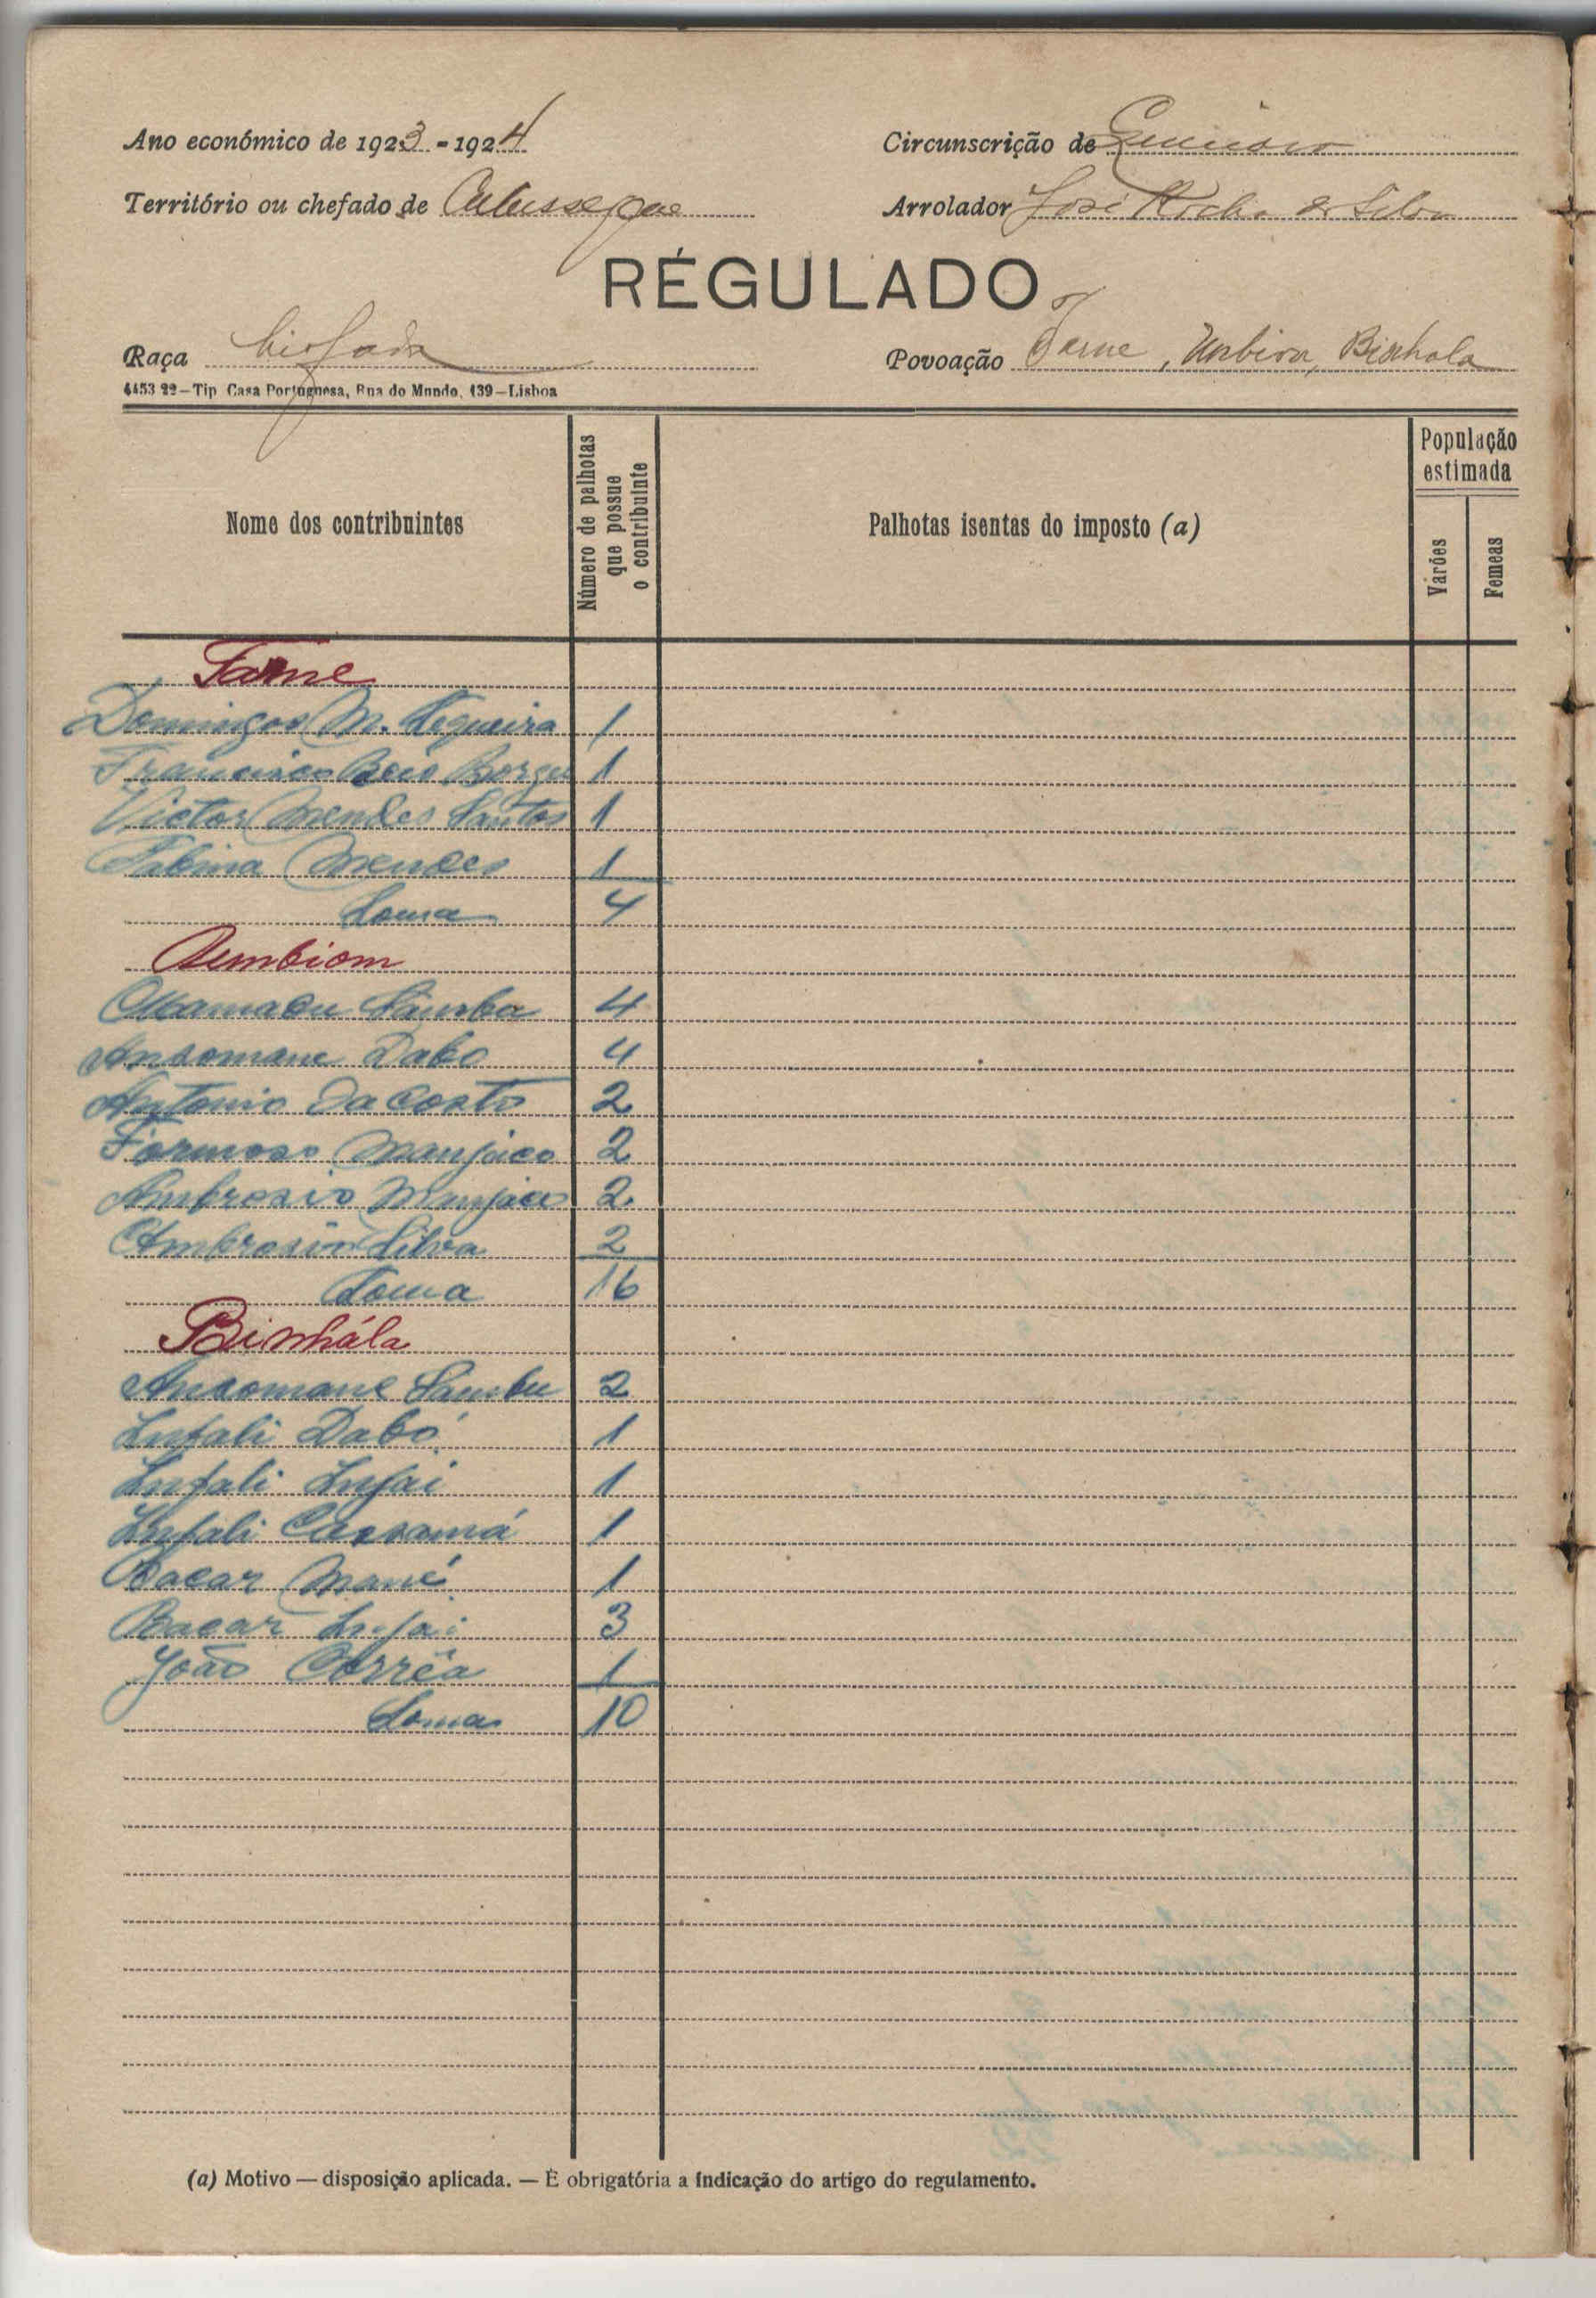 Ano económico de 1923-1924
Circunscrição de
Território ou chefado de Cubisseque
Arrolador José Rocha da Silva
RÉGULADO
Raça biafada
Povoação Farne, Unbion, Binhala
4453 22—Tip Casa Portuguesa, Rua do Mundo, 139—Lisboa
Nome dos contribuintes
Número de palhotas que possue o contribuinte
Palhotas isentas do imposto (a)
População estimada
Varões
Femeas
Farne
Domingos M. Sequeira 1
Francisco Borges 1
Victor Mendes Santos 1
Sabina Mendes 1
Soma 4
Umbiom
Mamadu Samba 4
Ansomane Dabo 4
Antonio da Costa 2
Formoso Manjaco 2
Ambrosio Manjaco 2
Ambrosio Silva 2
Soma 16
Binhála
Ansomane Sambu 2
Infali Dabó 1
Infali Injai 1
Infali Cassamá 1
Bacar Mané 1
Bacar Injai 3
João Corrêa 1
Soma 10
(a) Motivo — disposição aplicada. — É obrigatória a indicação do artigo do regulamento.